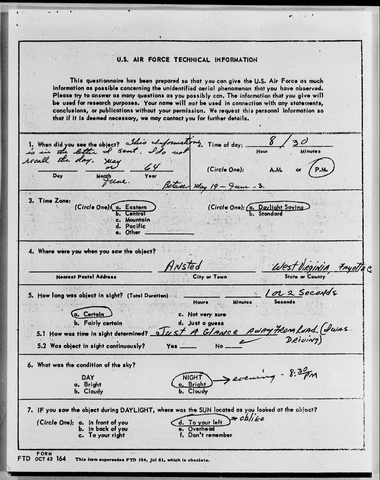 U.S. AIR FORCE TECHNICAL INFORMATION
This questionnaire has been prepared so that you can give the U.S. Air Force as much
information as possible concerning the unidentified aerial phenomenon that you have observed.
Please try to answer as many questions as you possibly can. The information that you give will
be used for research purposes. Your name will not be used in connection with any statements,
conclusions, or publications without your permission. We request this personal information so
that if it is deemed necessary, we may contact you for further details.
1. When did you see the object? This information Time of day: 8 / 30
is in the letter I sent. I do not Hour Minutes
recall the day. May
or 64 (Circle One): A.M. or P.M.
Day Month Year
June. Between May 19 - June - 3.
3. Time Zone:
(Circle One): a. Eastern (Circle One): a. Daylight Saving
b. Central b. Standard
c. Mountain
d. Pacific
e. Other
4. Where were you when you saw the object?
Ansted West Virginia, Fayette C
Nearest Postal Address City or Town State or County
5. How long was object in sight? (Total Duration) 1 or 2 Seconds
Hours Minutes Seconds
a. Certain c. Not very sure
b. Fairly certain d. Just a guess
5.1 How was time in sight determined? Just A Glance away from road. (I was
DRIVING)
5.2 Was object in sight continuously? Yes No ✓
6. What was the condition of the sky?
DAY NIGHT → evening - 8:30 PM
a. Bright a. Bright
b. Cloudy b. Cloudy
7. IF you saw the object during DAYLIGHT, where was the SUN located as you looked at the object?
(Circle One): a. In front of you d. To your left
b. In back of you e. Overhead
c. To your right f. Don't remember
FTD FORM OCT 62 164 This form supersedes FTD 164, Jul 61, which is obsolete.